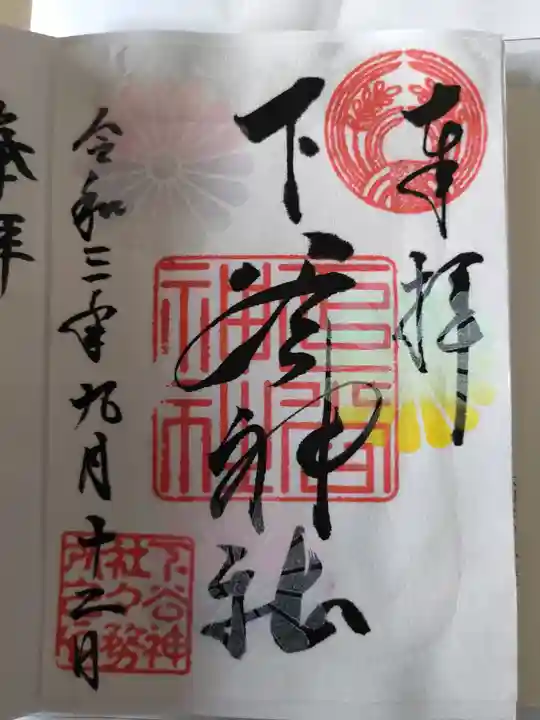 奉拝
下谷神社
令和三年九月十二日
下谷神
社々務
所之印
奉拝